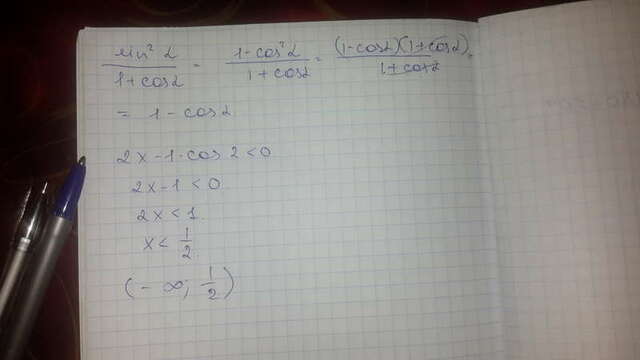 sin² α / 1+cos α = 1-cos² α / 1+cos α = (1-cos α)(1+cos α) / 1+cos α =
= 1 - cos α
2x - 1 · cos 2 < 0
2x - 1 < 0
2x < 1
x < 1/2
(- ∞; 1/2)